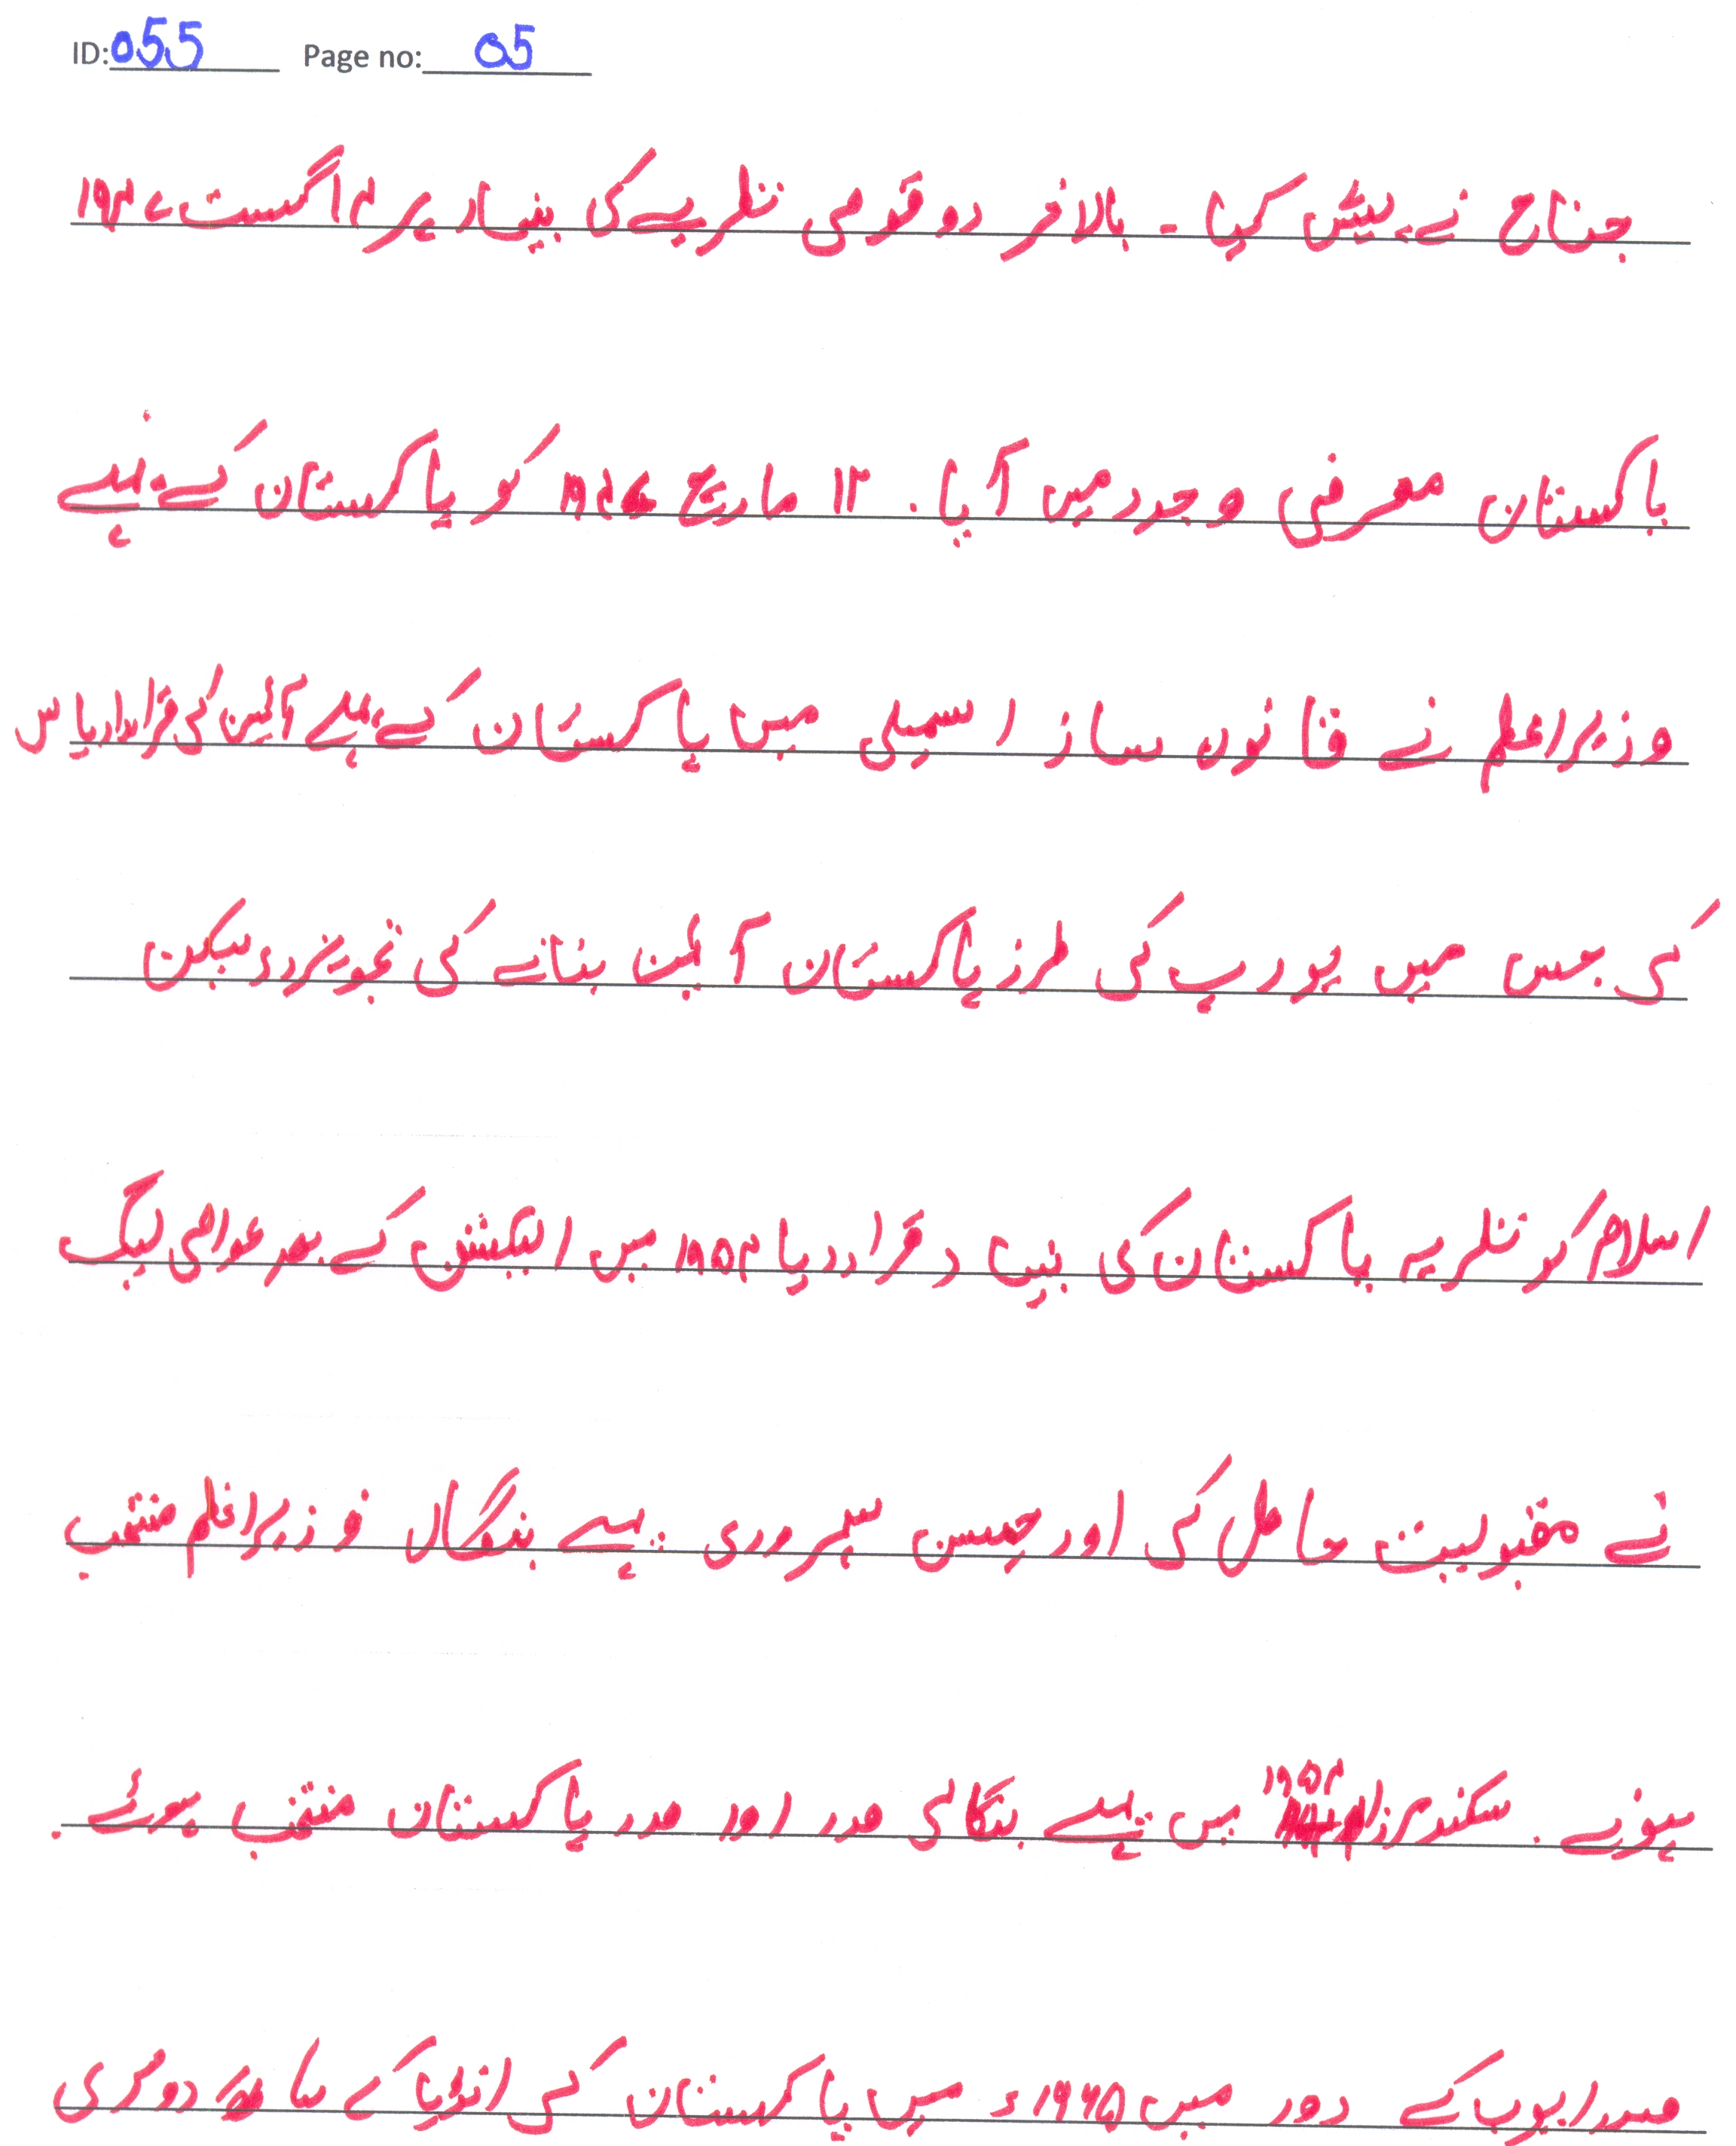 ID: 055 Page no: 05
جناح نے پیش کیا ۔ بالاخر دو قومی نظریے کی بنیاد پر ۱۴ اگست ۱۹۴۷
پاکستان معرضی وجود میں آیا ۔ ۱۲ مارچ کو پاکستان کے پہلے
وزیراعظم نے قانون ساز اسمبلی میں پاکستان کے پہلے آئین کی قرارداد پاس
کی جس میں یورپ کی طرز پاکستان آئین بنانے کی تجویز دی لیکن
اسلام کو نظریہ پاکستان کی بنیاد قرار دیا ۱۹۵۴ میں الیکشن کے بعد عوامی لیگ
نے مقبولیت حاصل کی اور حسین سہروردی پہلے بنگال وزیراعظم منتخب
ہوئے ۔ سکندر مرزا ۱۹۵۴ میں پہلے بنگالی صدر اور صدر پاکستان منتخب ہوئے ۔
صدر ایوب کے دور میں ۱۹۶۵ء میں پاکستان کی انڈیا کے ساتھ دوسری